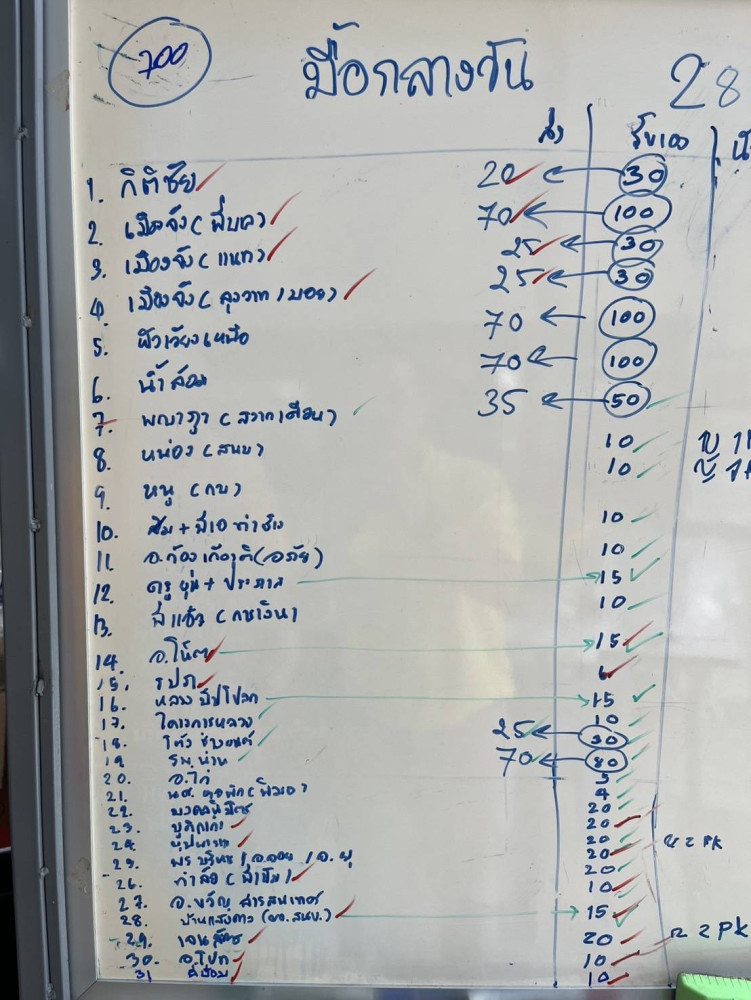 700 มื้อกลางวัน 28
ส่ง รับเอง
1. กิติชัย 20 30
2 เมืองจัง ( พี่นก ) 70 100
3. เมืองจัง ( แนท ) 25 30
4. เมืองจัง ( ลุงวาท / บอย ) 25 30
5. ฝั่งเวียงเหนือ 70 100
6. น้ำล้อม 70 100
7. พญาภู ( สวาทเฮือน ) 35 50
8. หน่อง ( สนบ ) 10
9. หนู ( กบ ) 10
10. ส้ม + พี่เอ ท่าช้าง 10
11 อ.ก้องเกียรติ ( อภัย ) 10
12. ครู ยุ่น + ประภาส 15
13. พี่แซ้ว ( การเงิน ) 10
14. อ.โน้ต 15
15. รปภ 6
16. หลวง ปีปโปตก 15
17. โครงการหลวง 10
18. โต้ง ช่างยนต์ 25 30
19 รพ. น่าน 70 80
20. อ.ไก่ 5
21. นศ. หอพัก ( พี่วอ ) 4
22. 20
23. 20
24. 20
25. พร บริหาร / อ.จอย / อ. ยุ 20 2 PK
26. ท่าล้อ ( พี่ส้ม ) 20
27. อ. ขวัญ สารสนเทศ 10
28. บ้านแสงดาว ( ผอ. สนบ. ) 15
29. เจน 20
30. อ. โปท 10 2 PK
31 พี่อ้อม 10